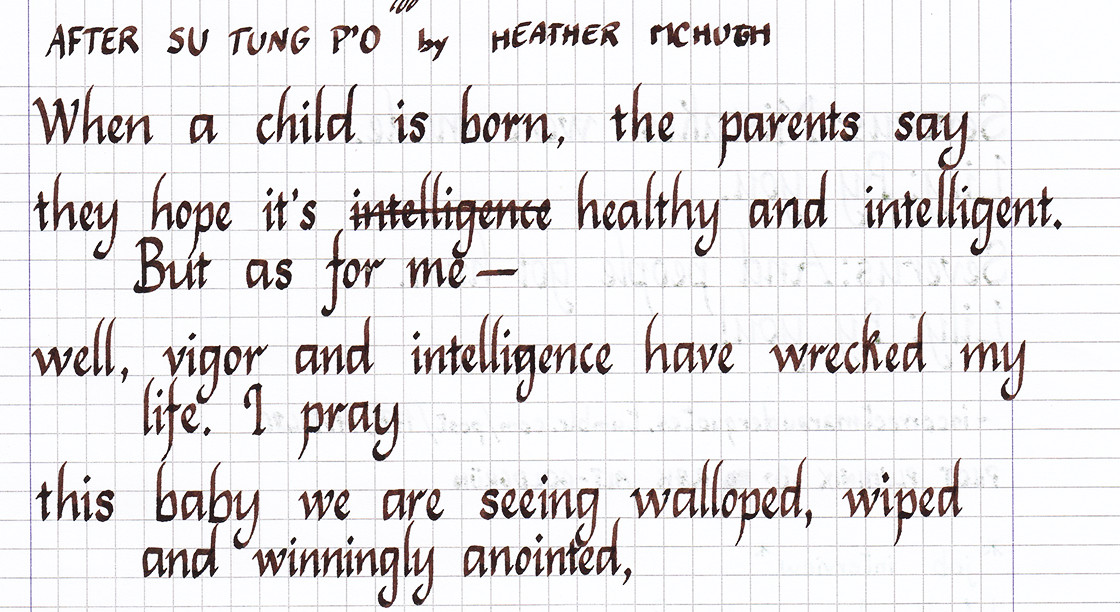 AFTER SU TUNG P'O by HEATHER MCHUGH
When a child is born, the parents say
they hope it's intelligence healthy and intelligent.
But as for me —
well, vigor and intelligence have wrecked my
life. I pray
this baby we are seeing walloped, wiped
and winningly anointed,